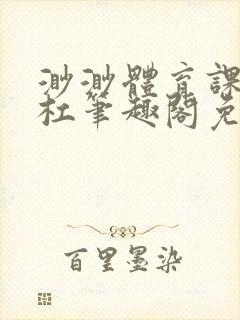 渺渺體育課
杜筆趣閣免
百里墨染